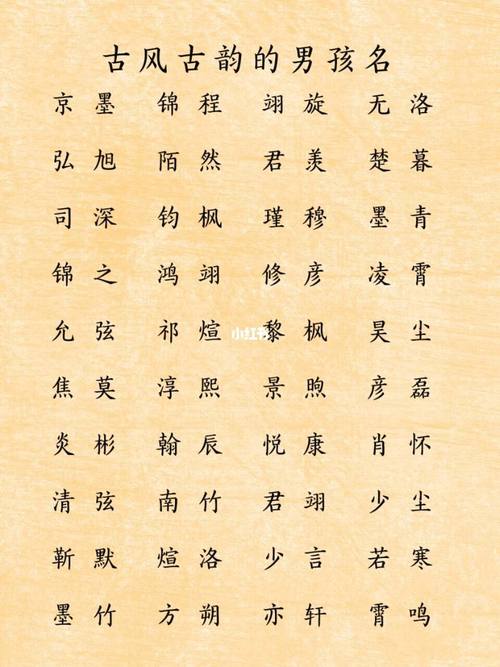 古风古韵的男孩名
京墨 锦程 翊旋 无洛
弘旭 陌然 君羡 楚暮
司深 钧枫 瑾穆 墨青
锦之 鸿翊 修彦 凌霄
允弦 祁煊 黎枫 昊尘
小红书
焦莫 淳熙 景煦 彦磊
炎彬 翰辰 悦康 肖怀
清弦 南竹 君翊 少尘
靳默 煊洛 少言 若寒
墨竹 方朔 亦轩 霄鸣